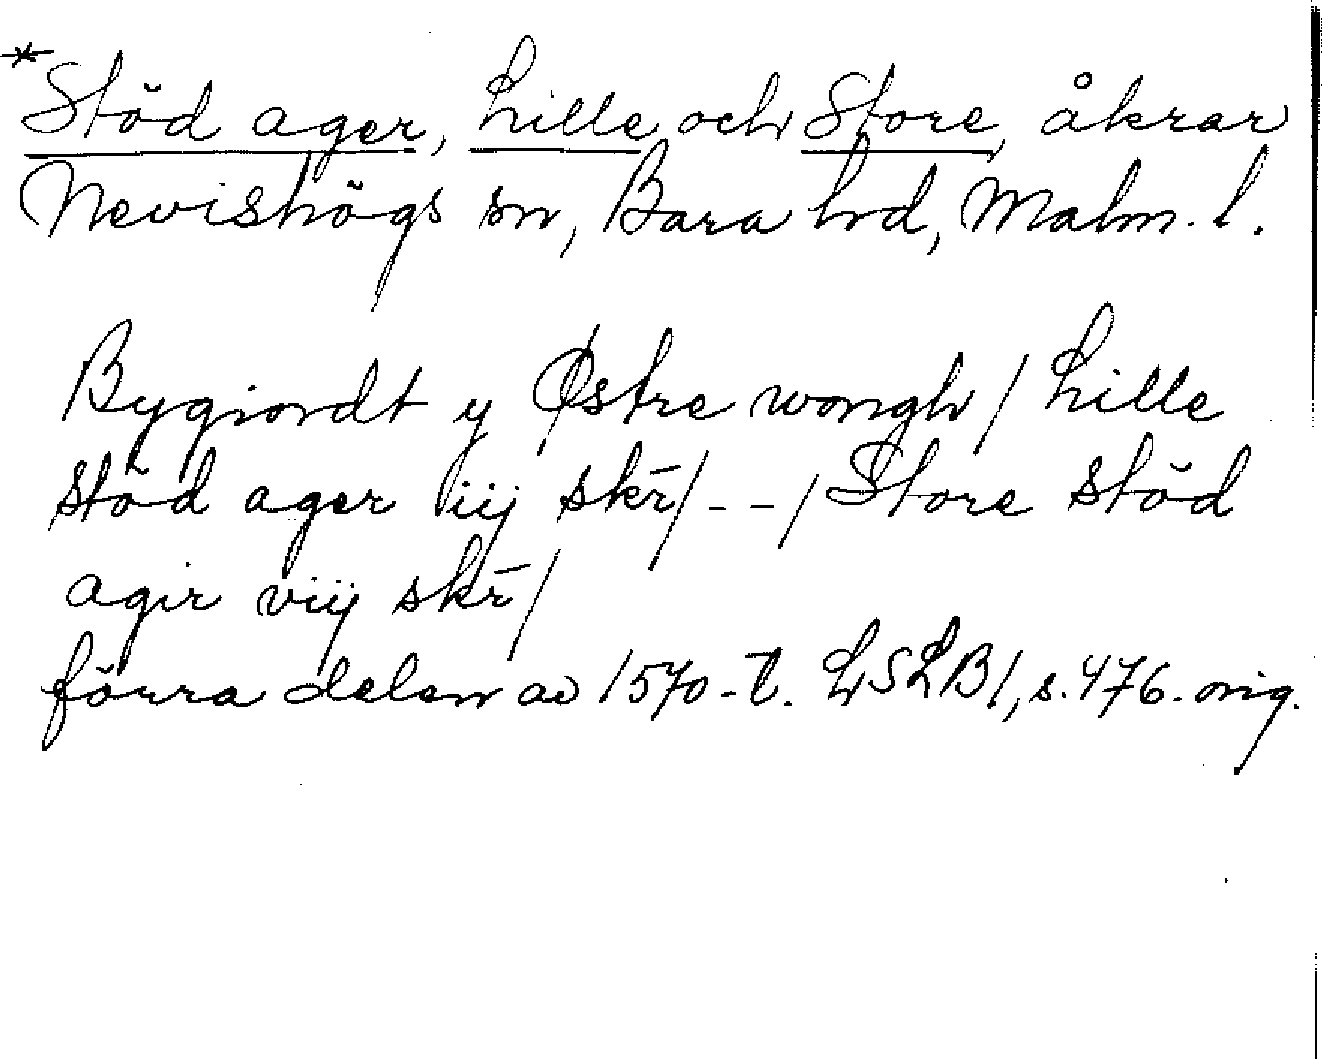 *Stöd ager, Lille och Store, åkrar
Nevishögs sn, Bara hd, Malm. l.
Bygiordt y Østre wongh / Lille
stöd ager iij skr̄ / - - / Store stöd
agir viij skr̄ /
förra delen av 1570-t. LSLB 1, s. 476. orig.